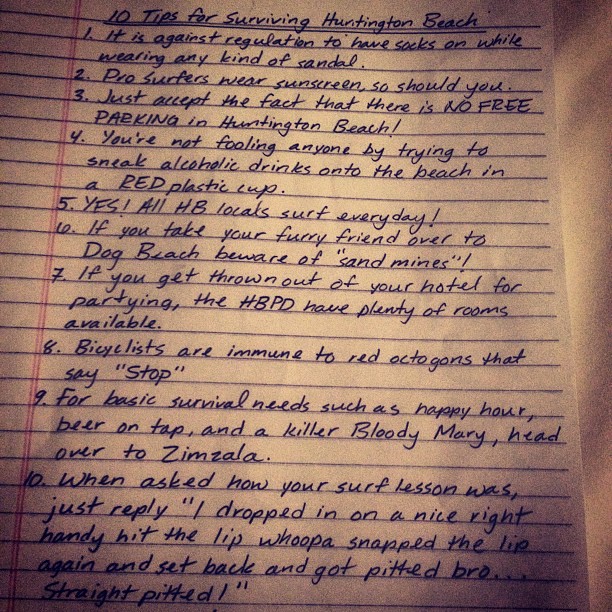 10 Tips for Surviving Huntington Beach
1. It is against regulation to have socks on while
wearing any kind of sandal.
2. Pro surfers wear sunscreen, so should you.
3. Just accept the fact that there is NO FREE
PARKING in Huntington Beach!
4. You're not fooling anyone by trying to
sneak alcoholic drinks onto the beach in
a RED plastic cup.
5. YES! All HB locals surf everyday!
6. If you take your furry friend over to
Dog Beach beware of "sand mines"!
7. If you get thrown out of your hotel for
partying, the HBPD have plenty of rooms
available.
8. Bicyclists are immune to red octogons that
say "Stop"
9. For basic survival needs such as happy hour,
beer on tap, and a killer Bloody Mary, head
over to Zimzala.
10. When asked how your surf lesson was,
just reply "I dropped in on a nice right
handy hit the lip whoopa snapped the lip
again and set back and got pitted bro...
Straight pitted!"